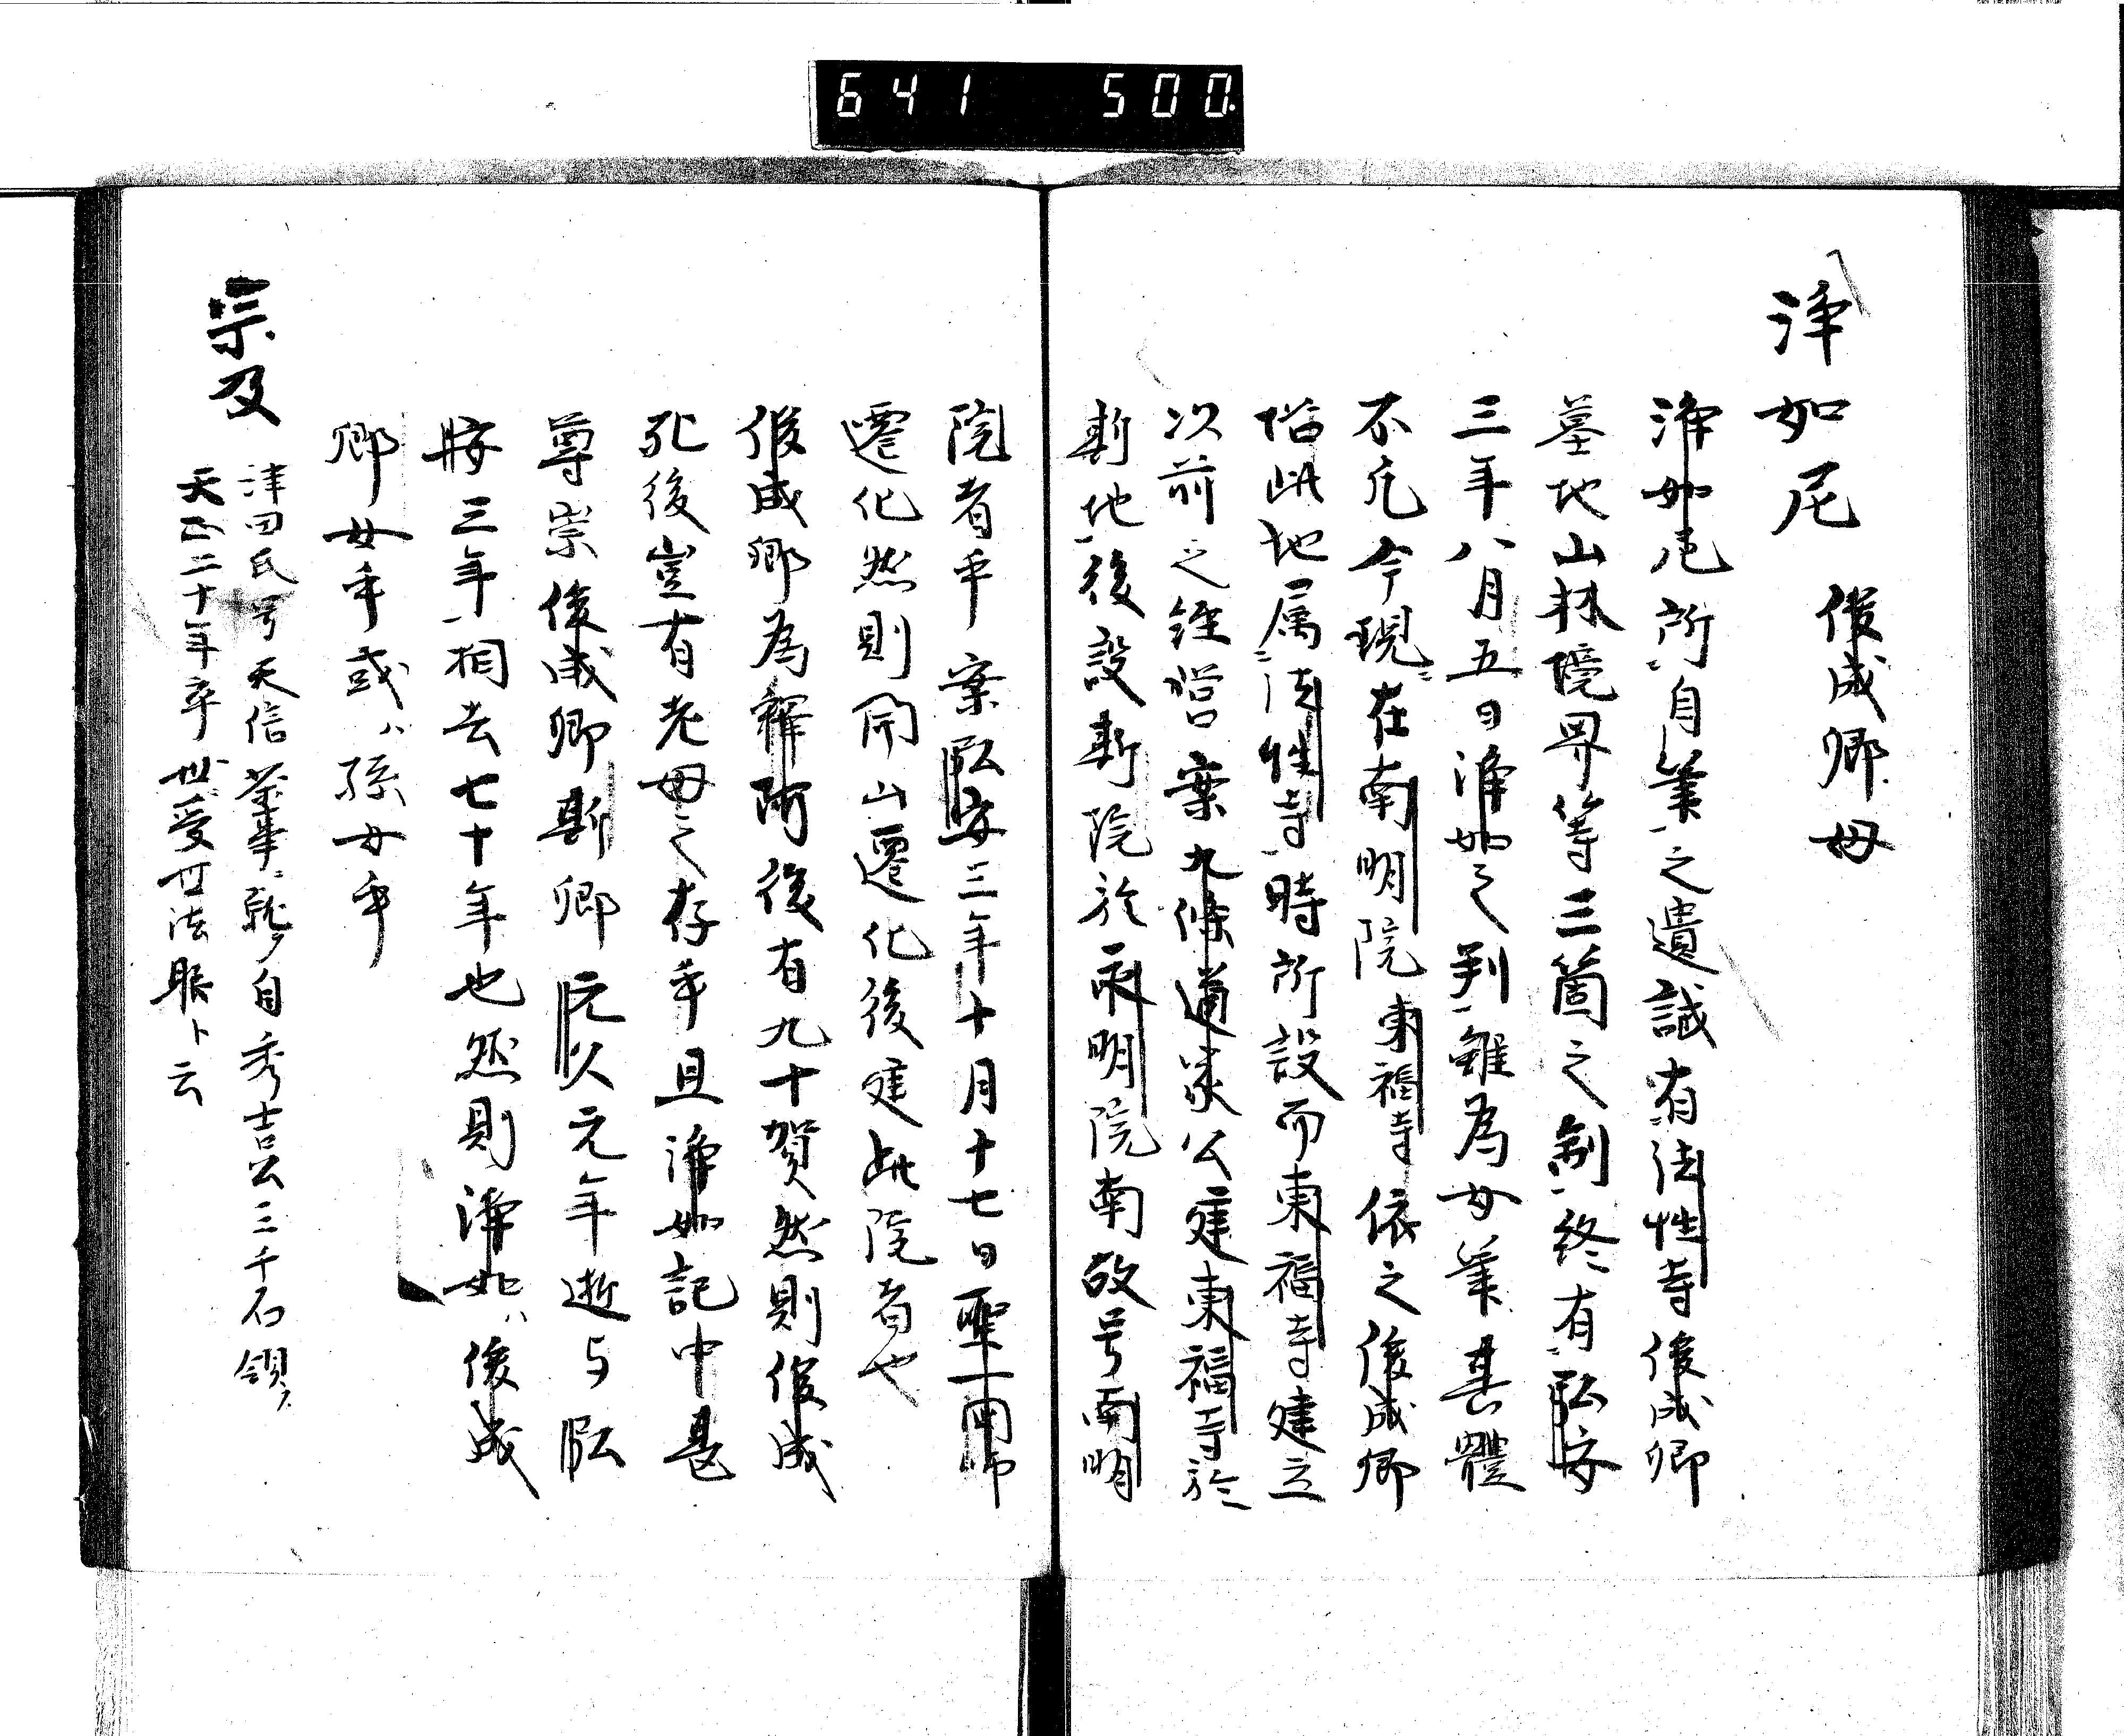 641 500.
浄如尼 俊成卿母
浄如尼所自筆之遺誡有法性寺俊成卿
墓地山林境界等三箇之制終有弘安
三年八月五日浄如之判雖為女筆其體
不凡今現在南明院東福寺依之俊成卿
階此地属法性寺時所設而東福寺建立
次前之經営案九條道家公建東福寺於
斯地後設斯院於南明院南故号南明
院者乎案弘安三年十月十七日聖一国師
遷化然則開山遷化後建此院者也
俊成卿為釋阿後有九十賀然則俊成
死後豈有老母之存乎且浄如記中甚
尊崇俊成卿斯卿元久元年逝与弘
安三年相去七十年也然則浄如ハ俊成
卿女乎或ハ孫女乎
宗及
津田氏号天信茶事ニ就ク自秀吉公三千石領ス
天正二十年卒世受廿法眼ト云